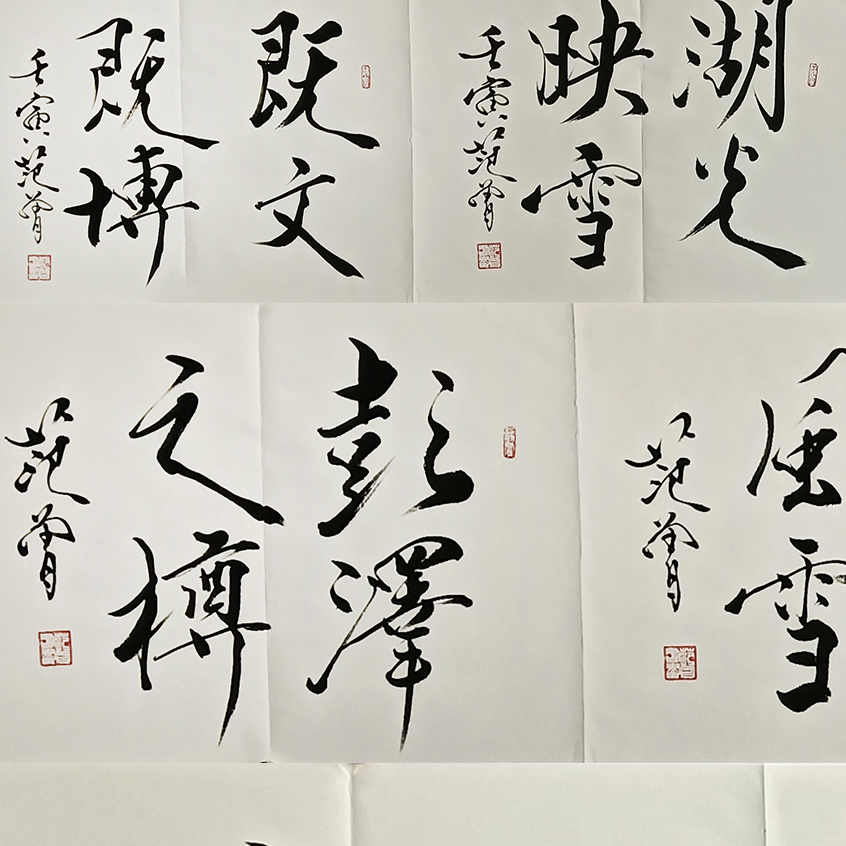 湖光
映雪
壬寅 江 范曾
既文
既博
壬寅 江 范曾
風雪
江 范曾
彭澤
之樽
江 范曾